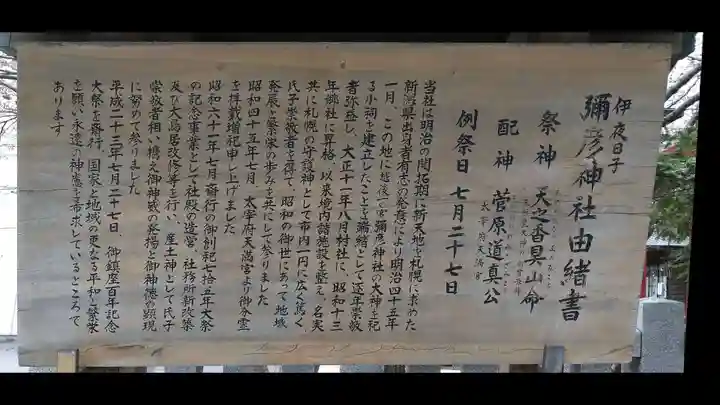 伊夜日子
彌彦神社由緒書
祭神 天之香具山命
配神 菅原道真公
太宰府天満宮
例祭日 七月二十七日
当社は明治の開拓期に新天地を札幌に求めた
新潟県出身者有志の発意により明治四十五年
一月、この地に越後一の宮彌彦神社の大神を祀
る小祠を建立したことを嚆緒として逐年崇敬
者弥益し、大正十一年八月村社に、昭和十三
年郷社に昇格、以来境内諸施設を整え、名実
共に札幌の守護神として市内一円に広く篤く
氏子崇敬者を得て、昭和の御世にあって地域
発展と繁栄の歩みを共にして参りました
昭和四十五年七月、太宰府天満宮より御分霊
を拝戴増祀申し上げました
昭和六十一年七月斎行の御創祀七拾五年大祭
の記念事業として社殿の造営、社務所新改築
及び大鳥居改修等を行い、産土神として氏子
崇敬者相い携え御神威の発揚と御神徳の顕現
に努めて参りました
平成二十三年七月二十七日、御鎮座百年記念
大祭を斎行、国家と地域の更なる平和と繁栄
を願い永遠の神恵を希求しているところで
あります